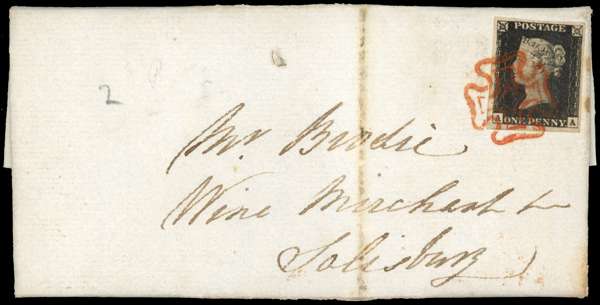 2
POSTAGE
A ONE PENNY A
Mr Brodie
Wine Merchant
Salisbury